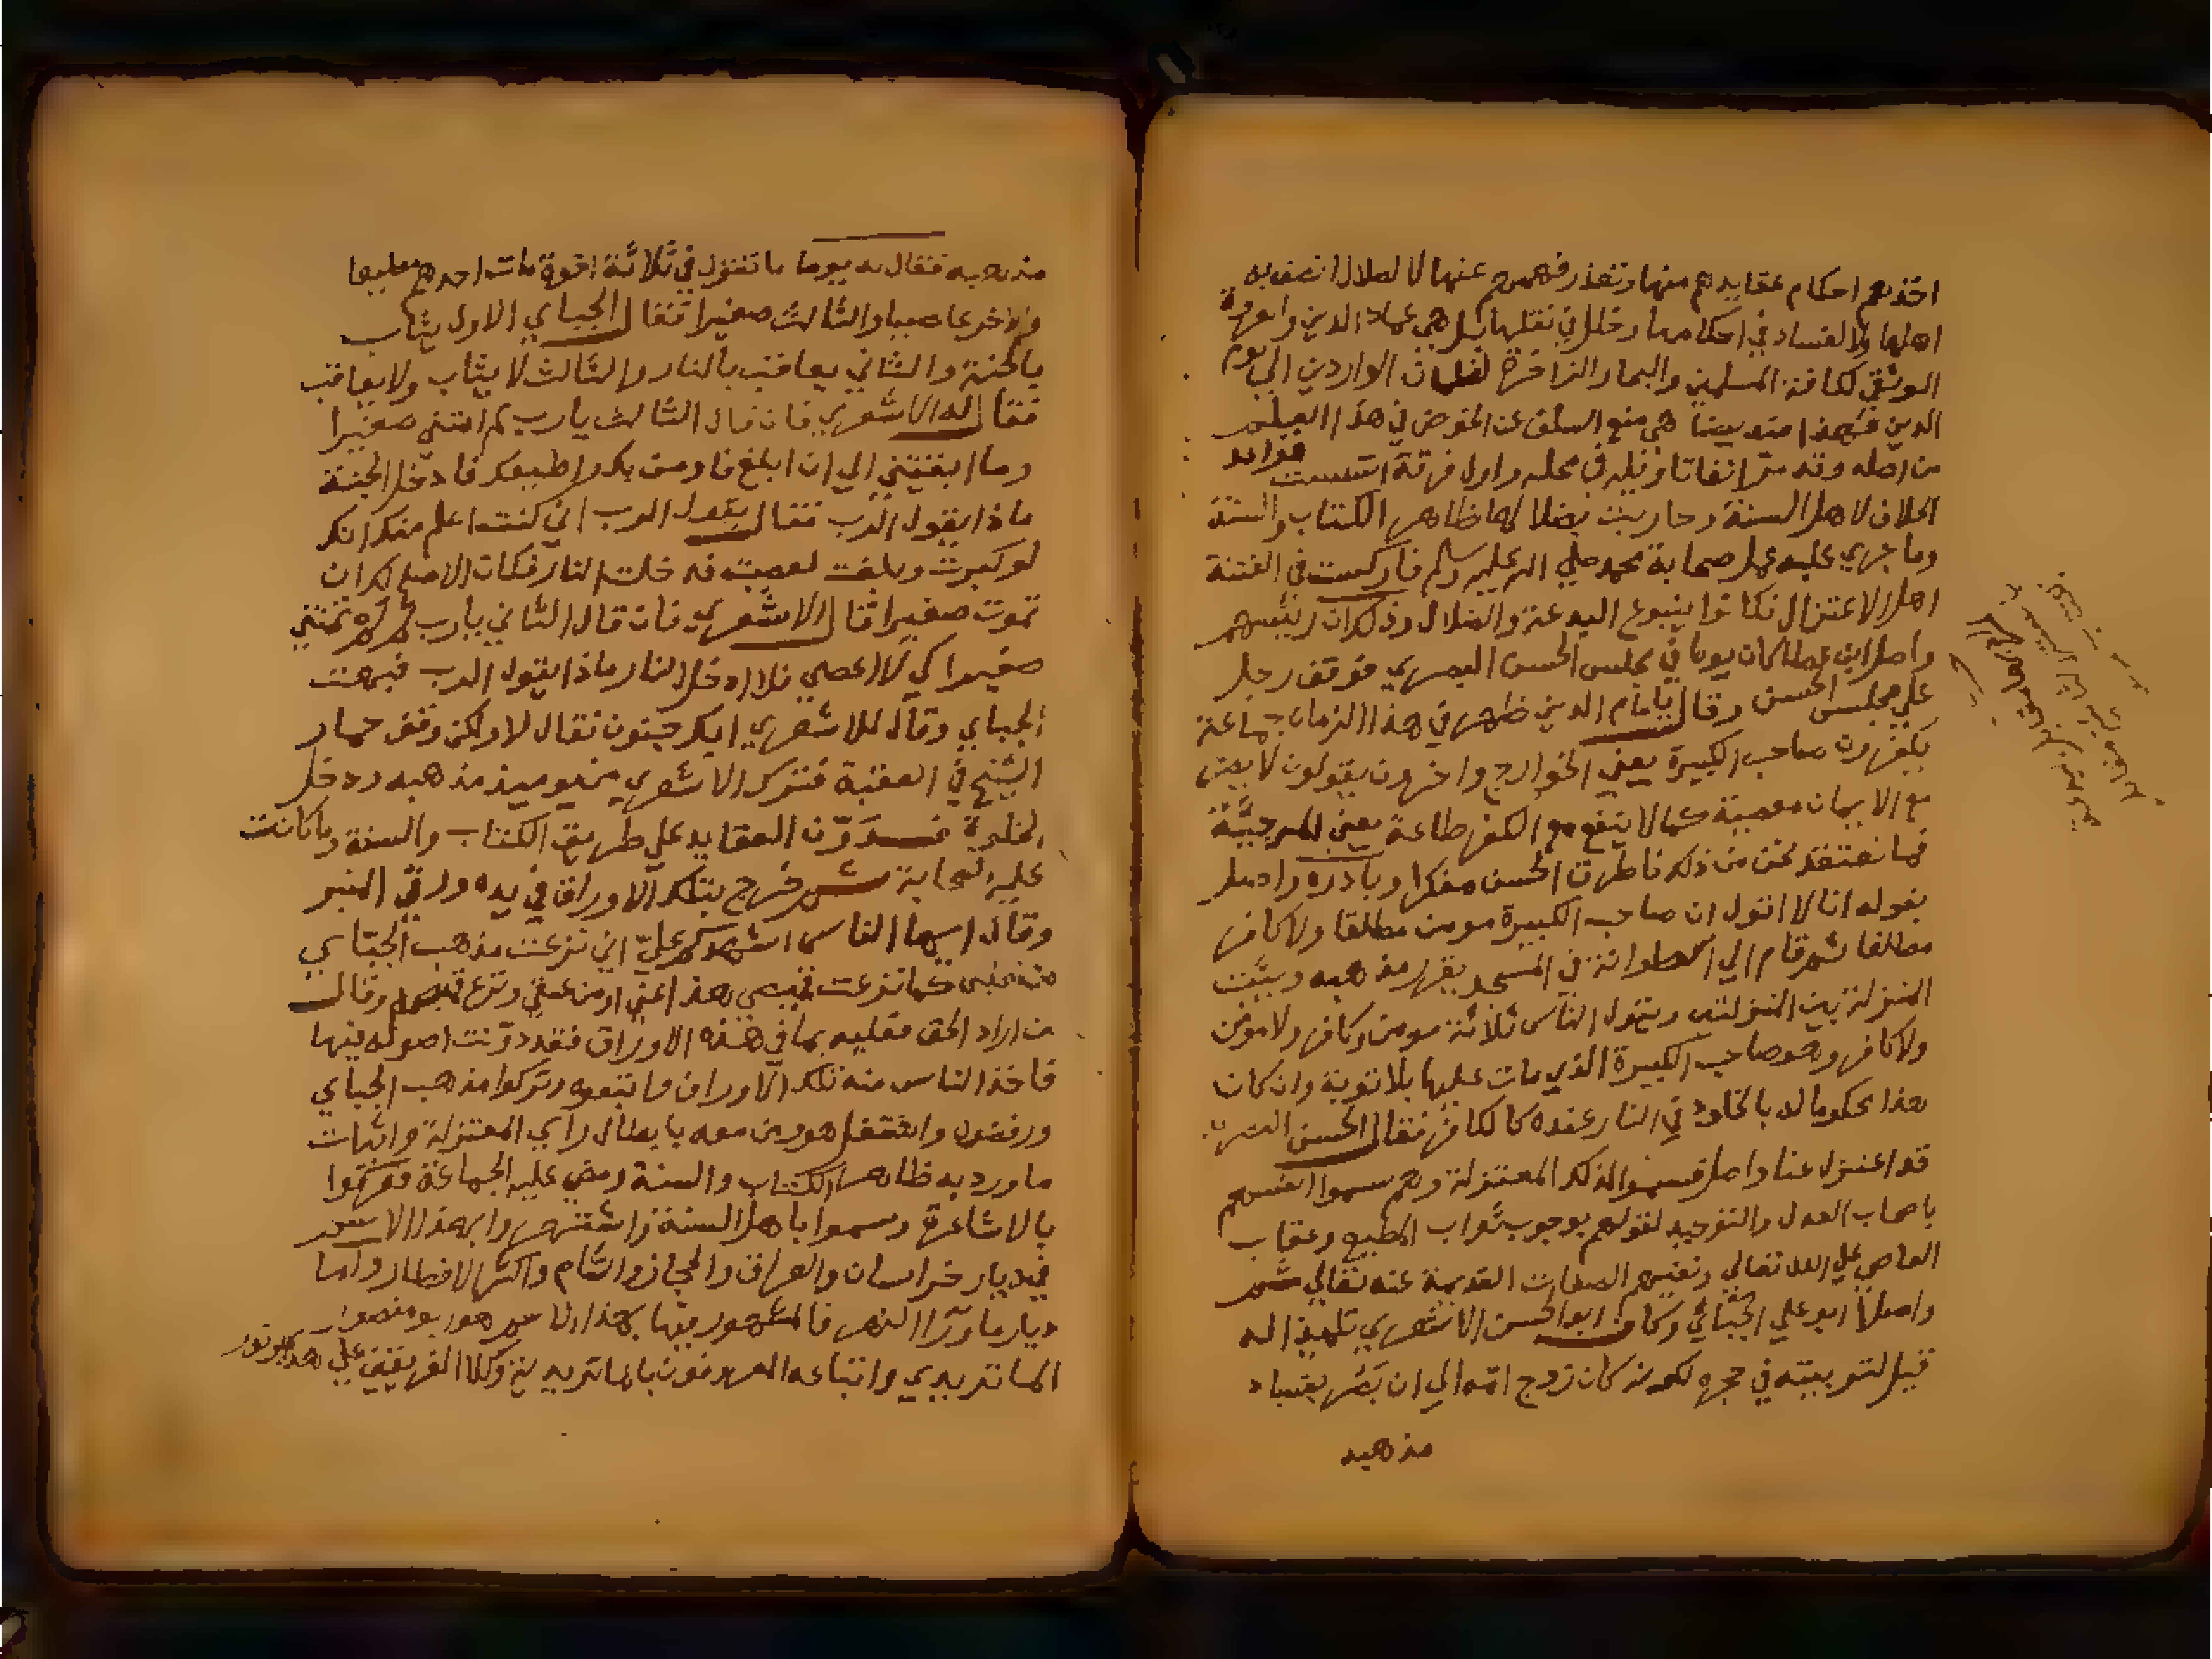 اخذهم احكام عقايدهم منها وتعذر فهمهم عنها لا لضلال اتصف به
اهلها ولا لفساد في احكامها وخلل في نقلها بل هي عماد الدين والعروة
الوثقي لكافة المسلمين والبحار الزاخرة الواردين الي يوم
الدين فبهذا هي منع السلف عن الخوض في هذا العلم
من اصله وقد في محله واول فرقة اسست قواعد
الخلاف لاهل السنة وحاربت لها ظاهر الكتاب والسنة
وما جري عليه عمل صحابة محمد صلي الله عليه وسلم فاركست في الفتنة
اهل الاعتزال فكانوا ينبوع البدعة والضلال وذلك ان رئيسهم
واصل ابن عطا كان يوما في مجلس الحسن البصري فوقف رجل
علي مجلس الحسن وقال يا امام الدين ظهر في هذا الزمان جماعة
يكفرون صاحب الكبيرة يعني الخوارج واخرون يقولون لا يضر
مع الايمان معصية كما لا ينفع مع الكفر طاعة يعني المرجئة
فما نعتقد نحن من ذلك فاطرق الحسن مفكرا وبادره واصل
بقوله انا لا اقول ان صاحب الكبيرة مومن مطلقا ولا كافر
مطلقا ثم قام الي اسطوانة في المسجد يقرر مذهبه ويثبت
المنزلة بين المنزلتين ويقول الناس ثلاثة مومن وكافر ولا مومن
ولا كافر وهو صاحب الكبيرة الذي مات عليها بلا توبة وان كان
هذا محكوما له بالخلود في النار عنده كالكافر فقال الحسن البصري
قد اعتزل عنا واصل فسموا لذلك المعتزلة وهم سموا انفسهم
باصحاب العدل والتوحيد لقولهم بوجوب ثواب المطيع وعقاب
العاصي علي الله تعالي ونفيهم الصفات القديمة عنه تعالي ثم
واصلها ابو علي الجبائي وكان ابو الحسن الاشعري تلميذا له
قيل لتربيته في حجره لكونه كان زوج امه الي ان بفساد
مذهبه
مذهبه فقال له يوما ما تقول في ثلاثة اخوة مات احدهم مطيعا
والاخر عاصيا والثالث صغيرا فقال الجباي الاول يثاب
بالجنة والثاني يعاقب بالنار والثالث لا يثاب ولا يعاقب
فقال له الاشعري فان قال الثالث يا رب لم امتني صغيرا
وما ابقيتني الي ان ابلغ فاومن بك واطيعك فادخل الجنة
ماذا يقول الرب فقال يقول الرب اني كنت اعلم منك انك
لو كبرت وبلغت لعصيت فدخلت النار فكان الاصلح لك ان
تموت صغيرا قال الاشعري فان قال الثاني يا رب لم لم تمتني
صغيرا كي لا اعصي فلا ادخل النار ماذا يقول الرب فبهت
الجباي وقال للاشعري ابك جنون فقال لا ولكن وقف حمار
الشيخ في العقبة فترك الاشعري من يوميذ مذهبه ودخل
الخلوة فدون العقايد علي طريق الكتاب والسنة وما كانت
عليه الصحابة ثم خرج بتلك الاوراق في يده ورقي المنبر
وقال ايها الناس اشهدكم علي اني نزعت مذهب الجباي
من عنقي كما نزعت قميصي هذا اعني ونزع قميصه وقال
من اراد الحق فعليه بما في هذه الاوراق فقد دونت اصوله فيها
فاخذ الناس منه تلك الاوراق واتبعوه وتركوا مذهب الجباي
ورفضوه واشتغل هو ومن معه بابطال راي المعتزلة واثبات
ما ورد به ظاهر الكتاب والسنة ومضي عليه الجماعة فعرفوا
بالاشاعرة وسموا باهل السنة واشتهروا بهذا الاسم
في ديار خراسان والعراق والحجاز والشام واكثر الاقطار واما
ديار ما ورا النهر فالمشهور فيها بهذا الاسم هو ابو منصور
الماتريدي واتباعه المعروفون بالماتريدية وكلا الفريقين علي هدي